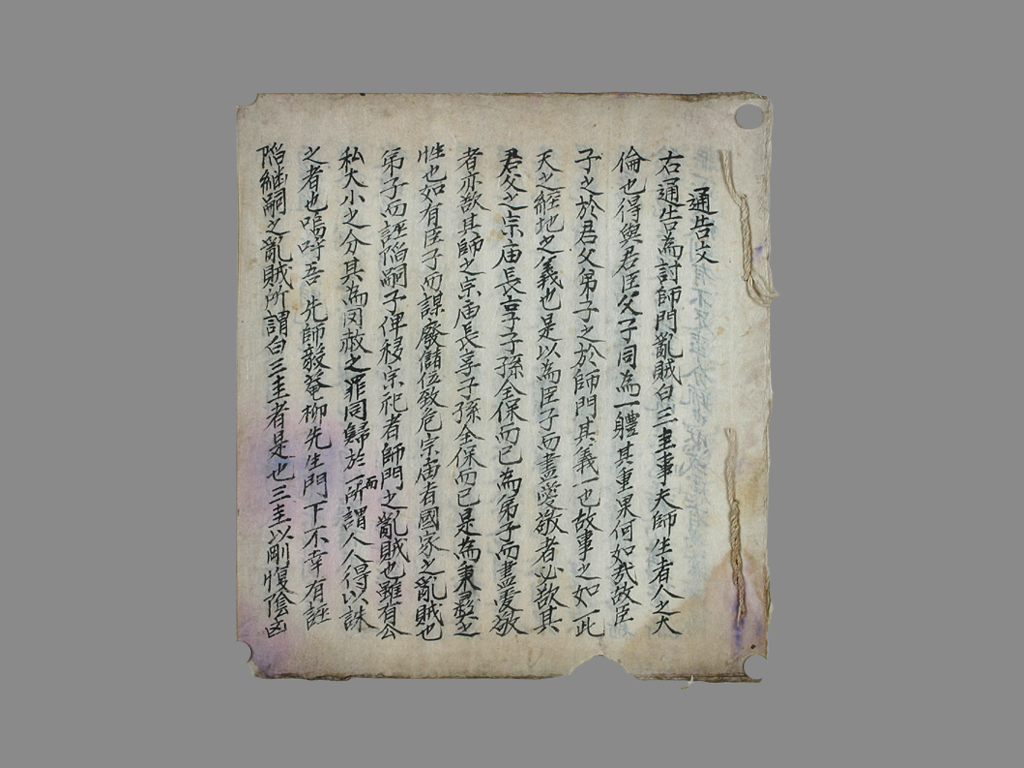 通告文
右通告為討師門亂賊白三圭事夫師生者人之大
倫也得與君臣父子同為一體其重果何如哉故臣
子之於君父弟子之於師門其義一也故事之如一此
天之經地之義也是以為臣子而盡愛敬者必欲其
君父之宗庙長享子孫全保而已為弟子而盡愛敬
者亦欲其師之宗庙長享子孫全保而已是為秉彛之
性也如有臣子而謀廢儲位致危宗庙者國家之亂賊也
弟子而誣陷嗣子俾移宗祀者師門之亂賊也雖有公
私大小之分其為罔赦之罪同歸於一而所謂人人得以誅
之者也嗚呼吾先師毅菴柳先生門下不幸有誣
陷継嗣之亂賊所謂白三圭者是也三圭以剛愎陰凶